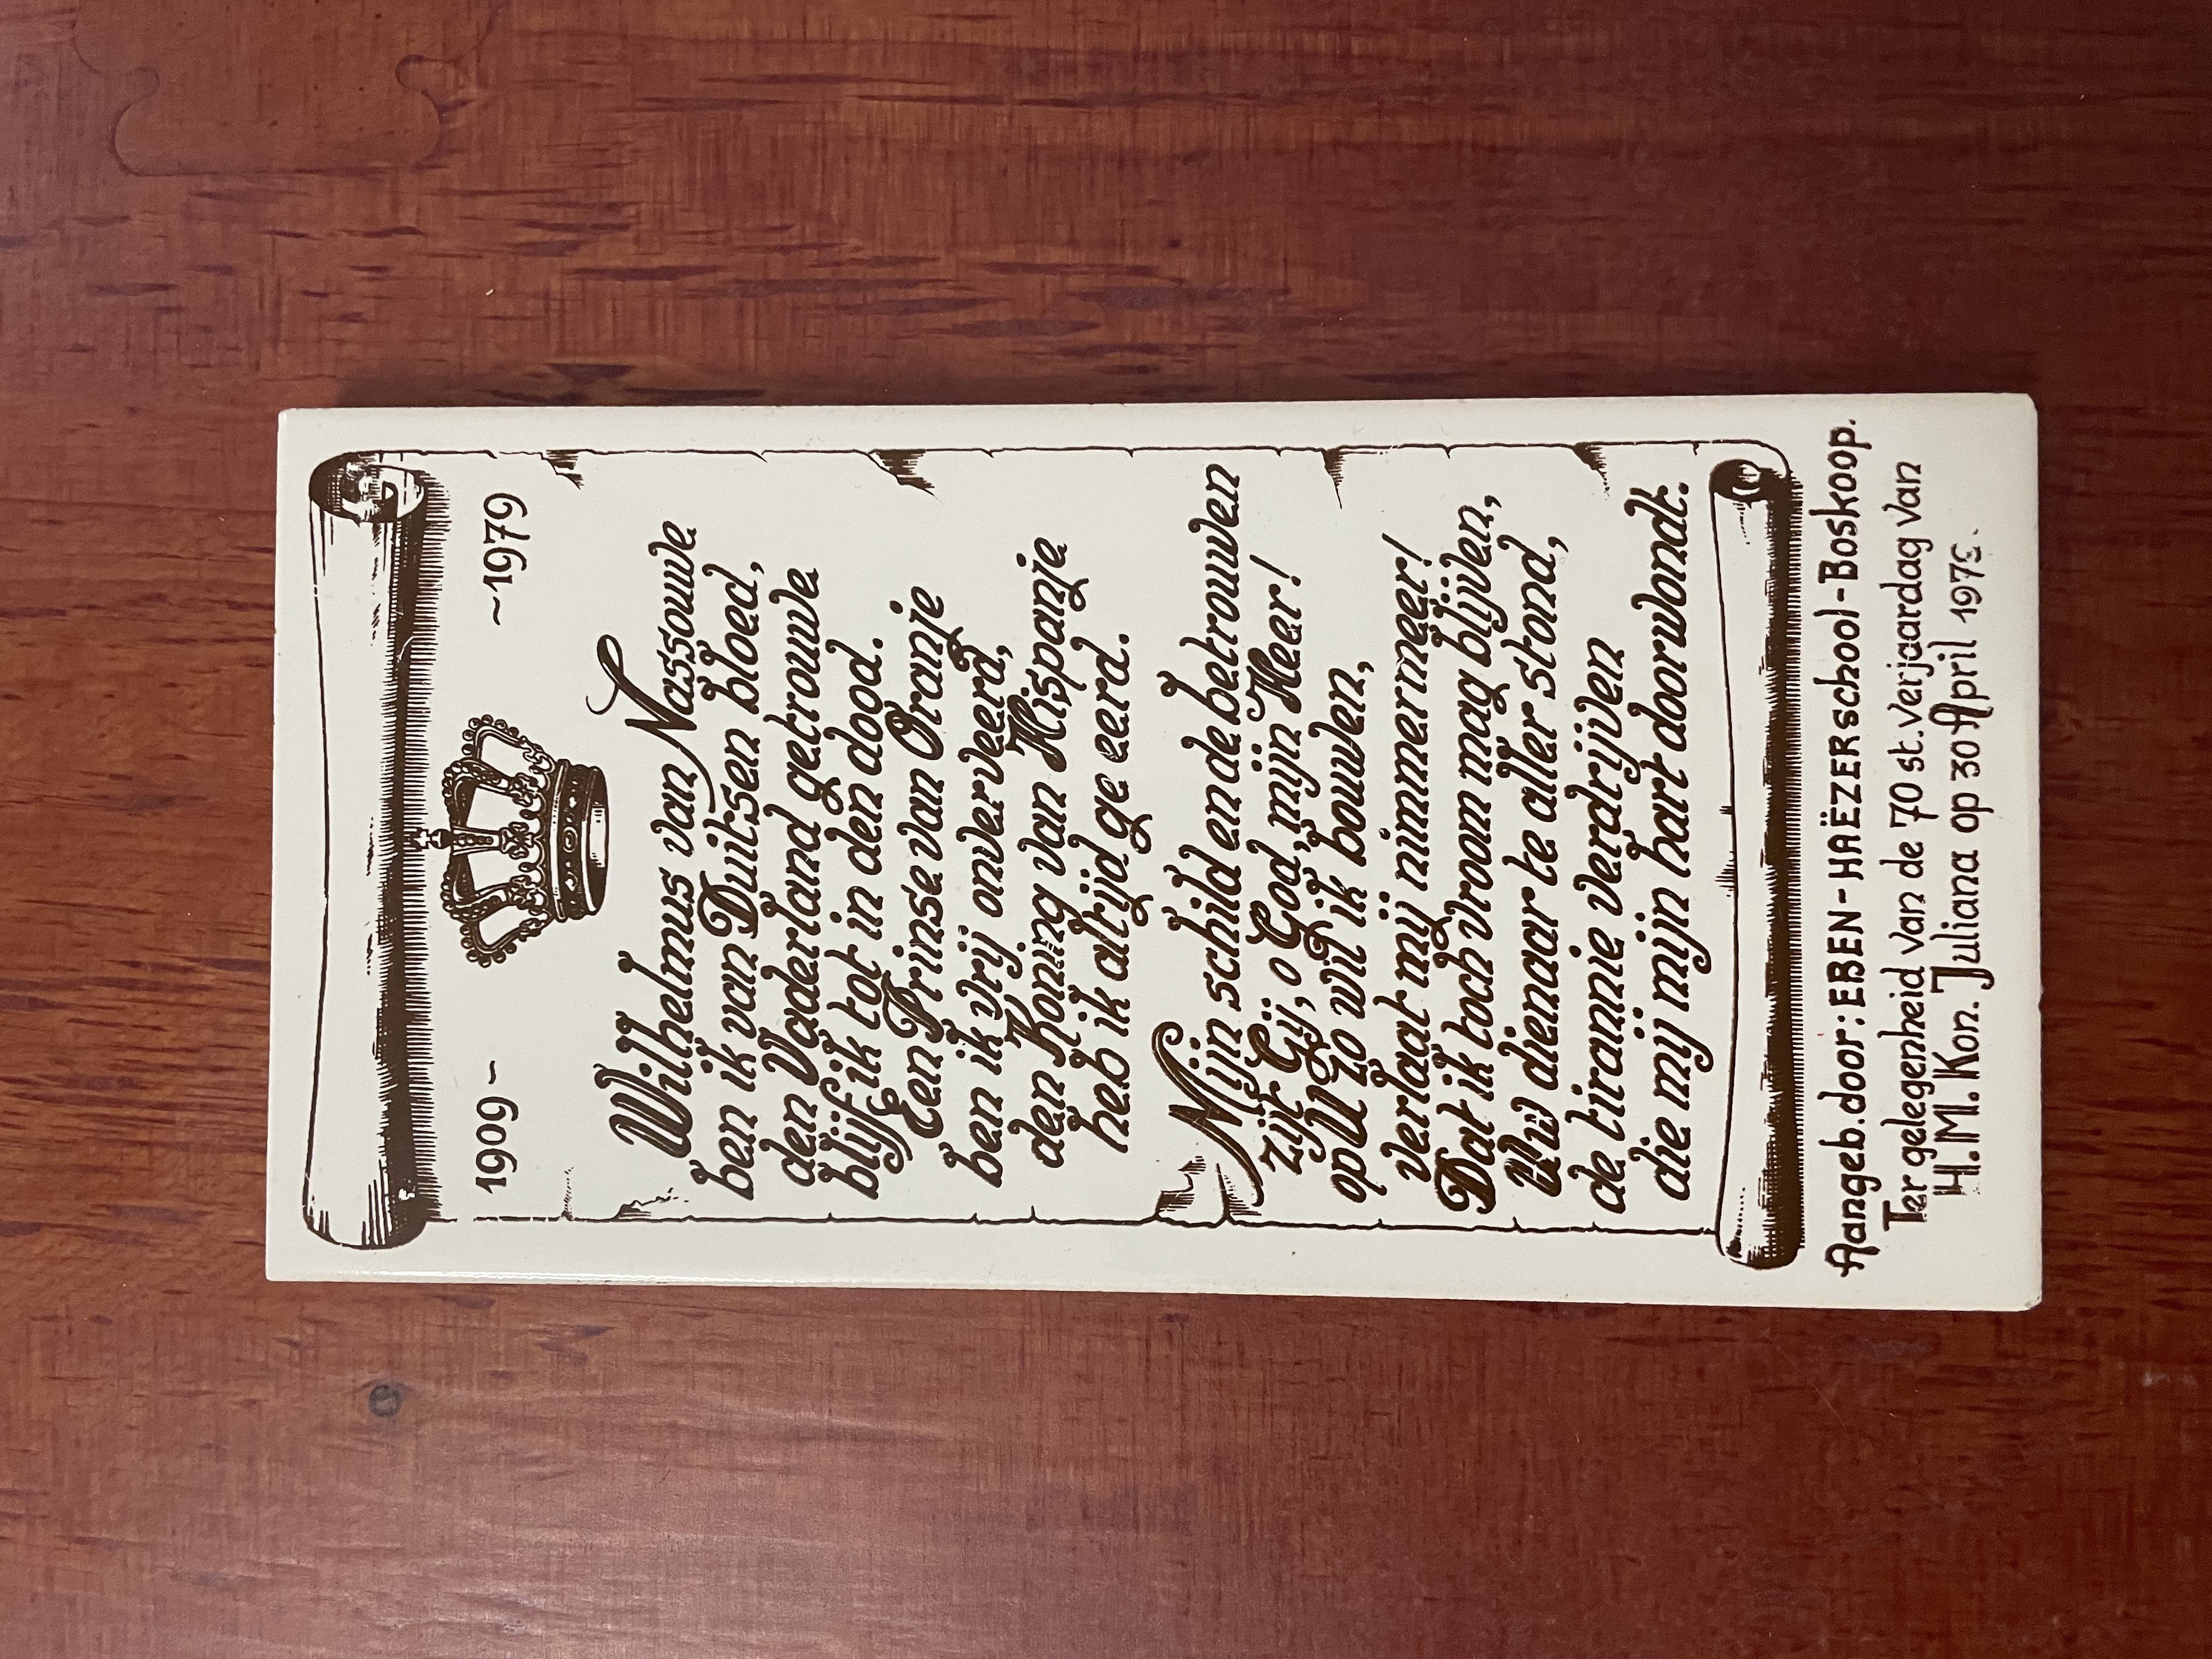 1909 ~ ~1979
Wilhelmus van Nassouwe
ben ik van Duitsen bloed,
den Vaderland getrouwe
blijf ik tot in den dood.
Een Prinse van Oranje
ben ik vrij onverveerd,
den Koning van Hispanje
heb ik altijd ge eerd.
Mijn schild ende betrouwen
zijt Gij, o God, mijn Heer!
op U zo wil ik bouwen,
verlaat mij nimmermeer!
Dat ik toch vroom mag blijven,
Uw dienaar te aller stond,
de tirannie verdrijven
die mij mijn hart doorwondt.
Aangeb. door: EBEN-HAËZERschool-Boskoop.
Ter gelegenheid van de 70 st. verjaardag van
H.M. Kon. Juliana op 30 April 1979.